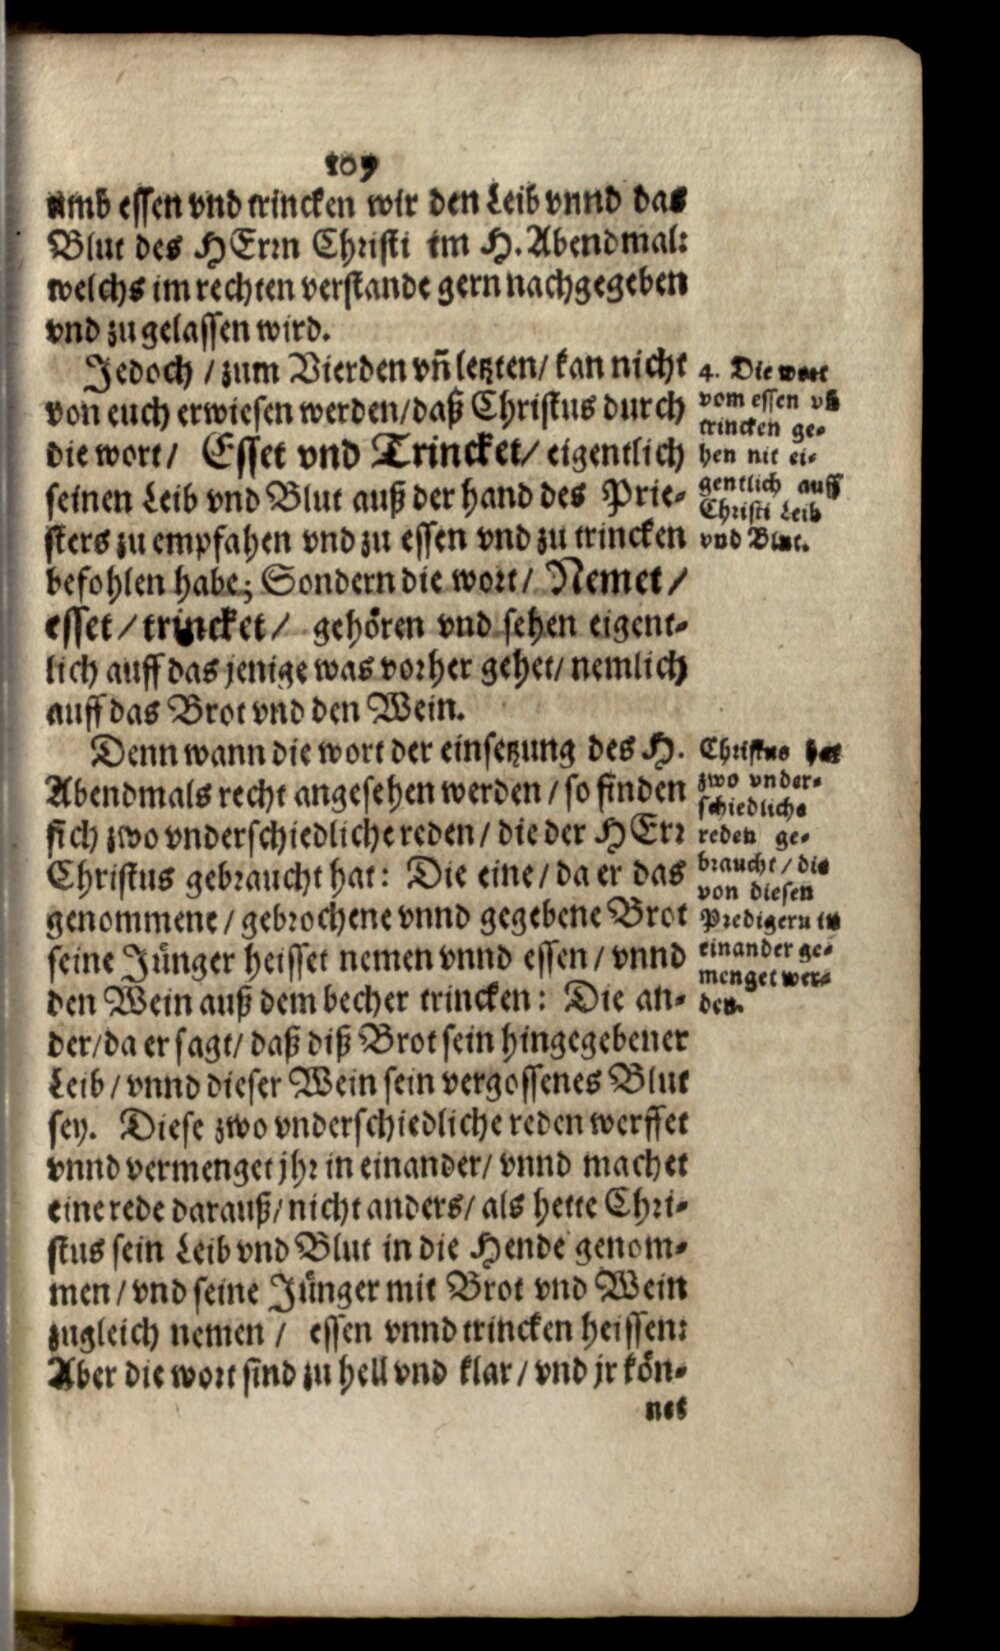 109
umb essen vnd trincken wir den Leib vnnd das
Blut des HErrn Christi im H. Abendmal:
welchs im rechten verstande gern nachgegeben
vnd zugelassen wird.
Jedoch / zum Vierden vñ letzten / kan nicht
von euch erwiesen werden / daß Christus durch
die wort / Esset vnd Trincket / eigentlich
seinen Leib vnd Blut auß der hand des Prie-
sters zu empfahen vnd zu essen vnd zu trincken
befohlen habe; Sondern die wort / Nemet /
esset / trincket / gehören vnd sehen eigent-
lich auff das jenige was vorher gehet / nemlich
auff das Brot vnd den Wein.
4. Die wort
vom essen vñ
trincken ge-
hen nit ei-
gentlich auff
Christi Leib
vnd Blut.
Denn wann die wort der einsetzung des H.
Abendmals recht angesehen werden / so finden
sich zwo vnderschiedliche reden / die der HErr
Christus gebraucht hat: Die eine / da er das
genommene / gebrochene vnnd gegebene Brot
seine Jünger heisset nemen vnnd essen / vnnd
den Wein auß dem becher trincken: Die an-
der / da er sagt / daß diß Brot sein hingegebener
Leib / vnnd dieser Wein sein vergossenes Blut
sey. Diese zwo vnderschiedliche reden werffet
vnnd vermenget jhr in einander / vnnd machet
eine rede darauß / nicht anders / als hette Chri-
stus sein Leib vnd Blut in die Hende genom-
men / vnd seine Jünger mit Brot vnd Wein
zugleich nemen / essen vnnd trincken heissen:
Aber die wort sind zu hell vnd klar / vnd jr kön-
Christus hat
zwo vnder-
schiedliche
reden ge-
braucht / die
von diesen
Predigern in
einander ge-
menget wer-
den.
net